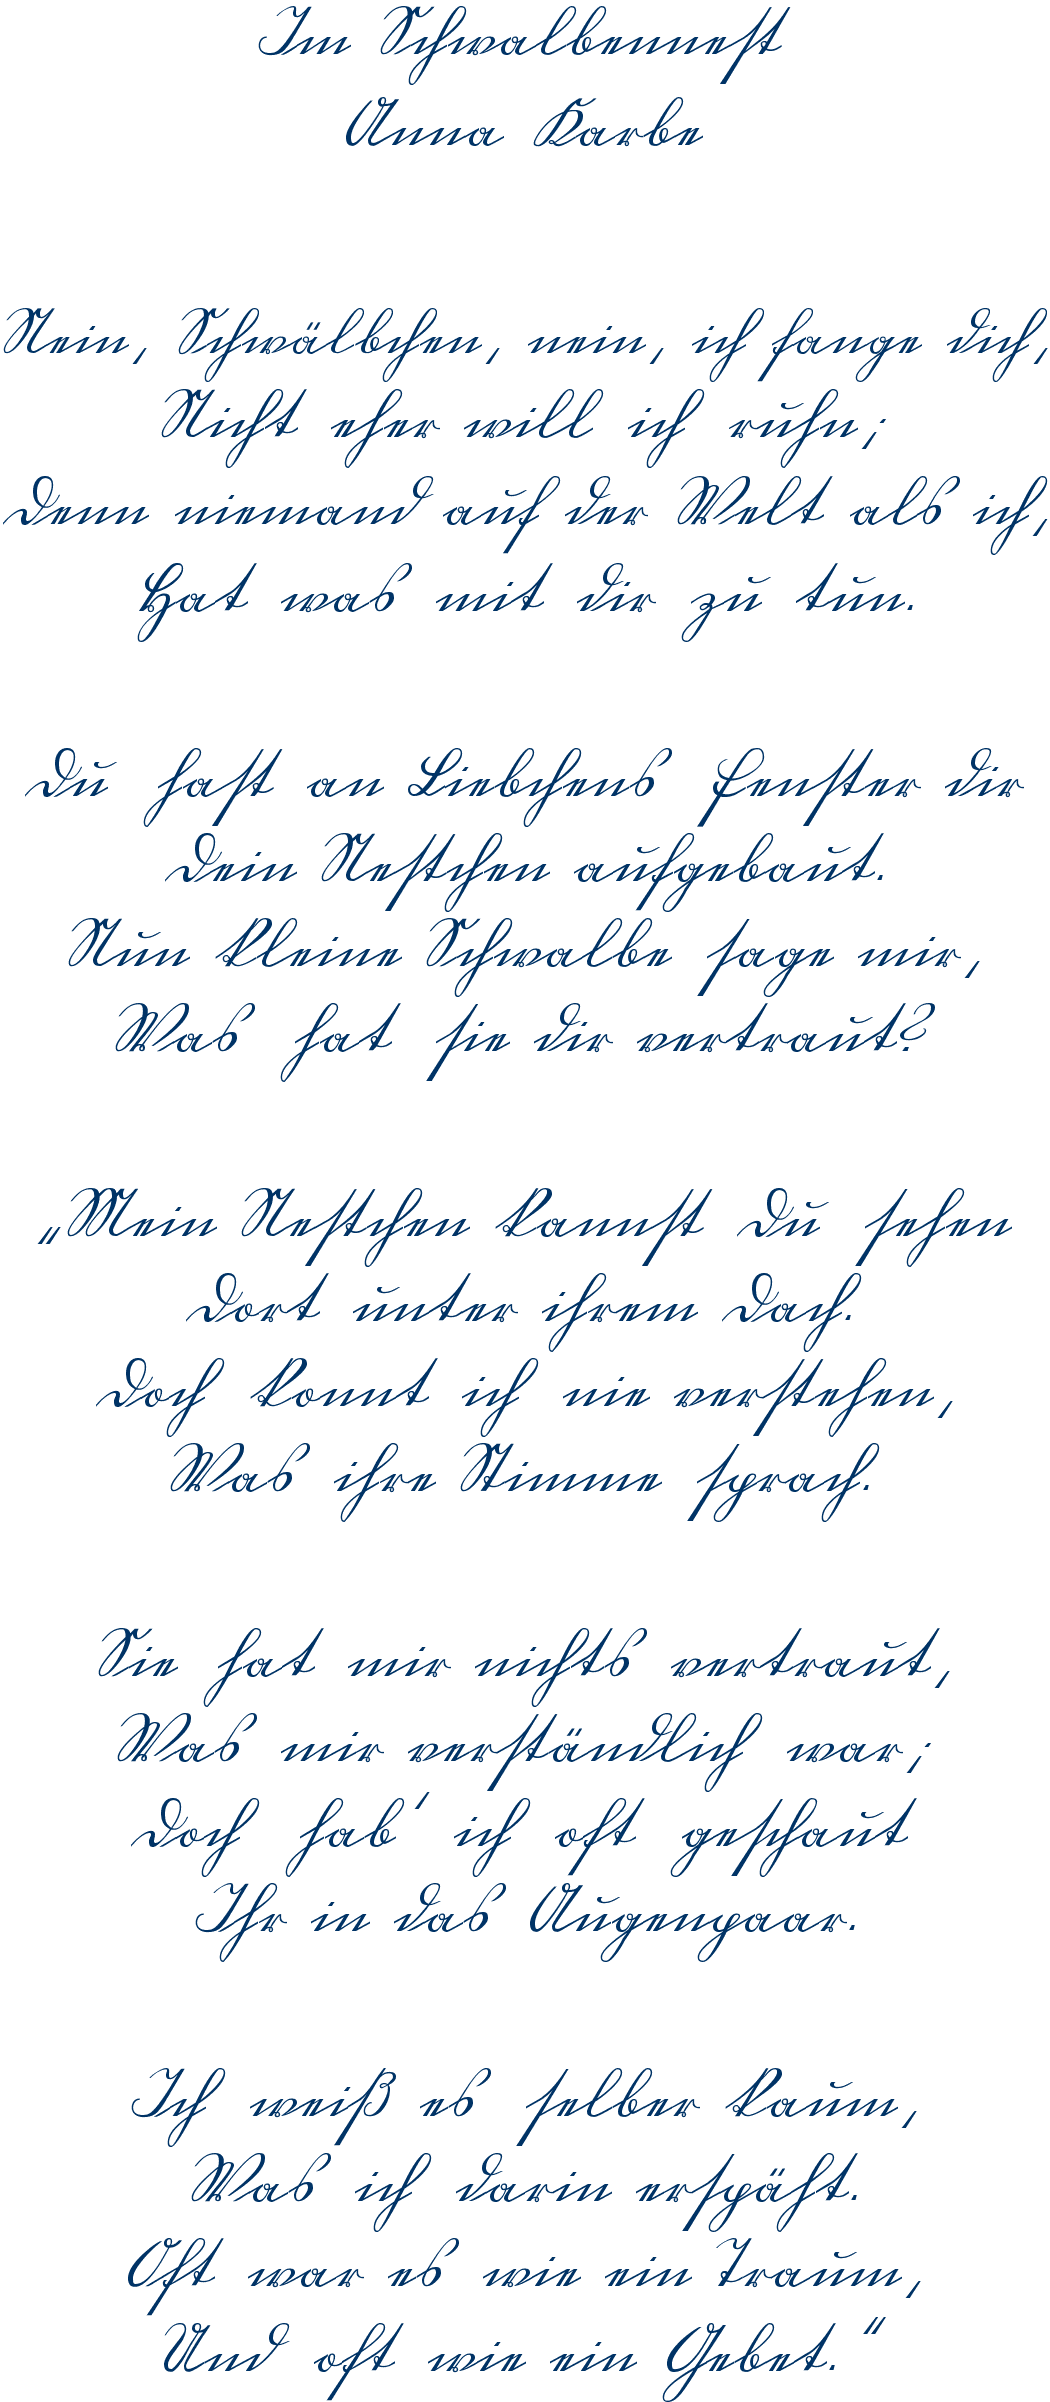 Im Schwalbennest
Anna Karbe
Nein, Schwälbchen, nein, ich fange dich,
Nicht eher will ich ruhn;
Denn niemand auf der Welt als ich,
Hat was mit dir zu tun.
Du hast an Liebchens Fenster dir
Dein Nestchen aufgebaut.
Nun kleine Schwalbe sage mir,
Was hat sie dir vertraut?
„Mein Nestchen kannst Du sehen
Dort unter ihrem Dach.
Doch konnt ich nie verstehen,
Was ihre Stimme sprach.
Sie hat mir nichts vertraut,
Was mir verständlich war;
Doch hab' ich oft geschaut
Ihr in das Augenpaar.
Ich weiß es selber kaum,
Was ich darin erspäht.
Oft war es wie ein Traum,
Und oft wie ein Gebet.“